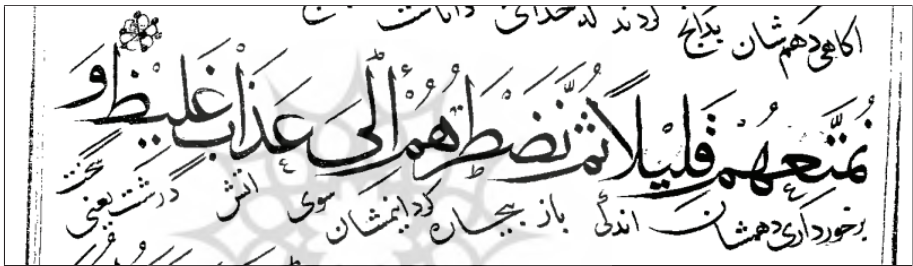 اکاهی دهم شان بدانچ کردند که خدای داناست
نُمَتِّعُهُمْ قَلِيلًا ثُمَّ نَضْطَرُّهُمْ إِلَىٰ عَذَابٍ غَلِيظٍ وَ
برخورداری دهمشان اندکی باز بیجاره کردانیمشان سوی اتش درشت یعنی سخت